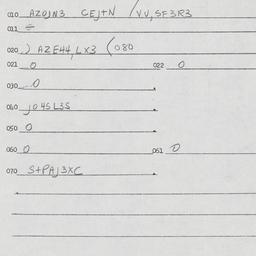 010 AZOJN3 CEJ+N /VV,SF3R3
011 ÷
020 ) AZE44,LX3 (080
021 0 022 0
030 0
060 JO4SL3S
050 0
060 0 061 0
070 S+PAJ3XC